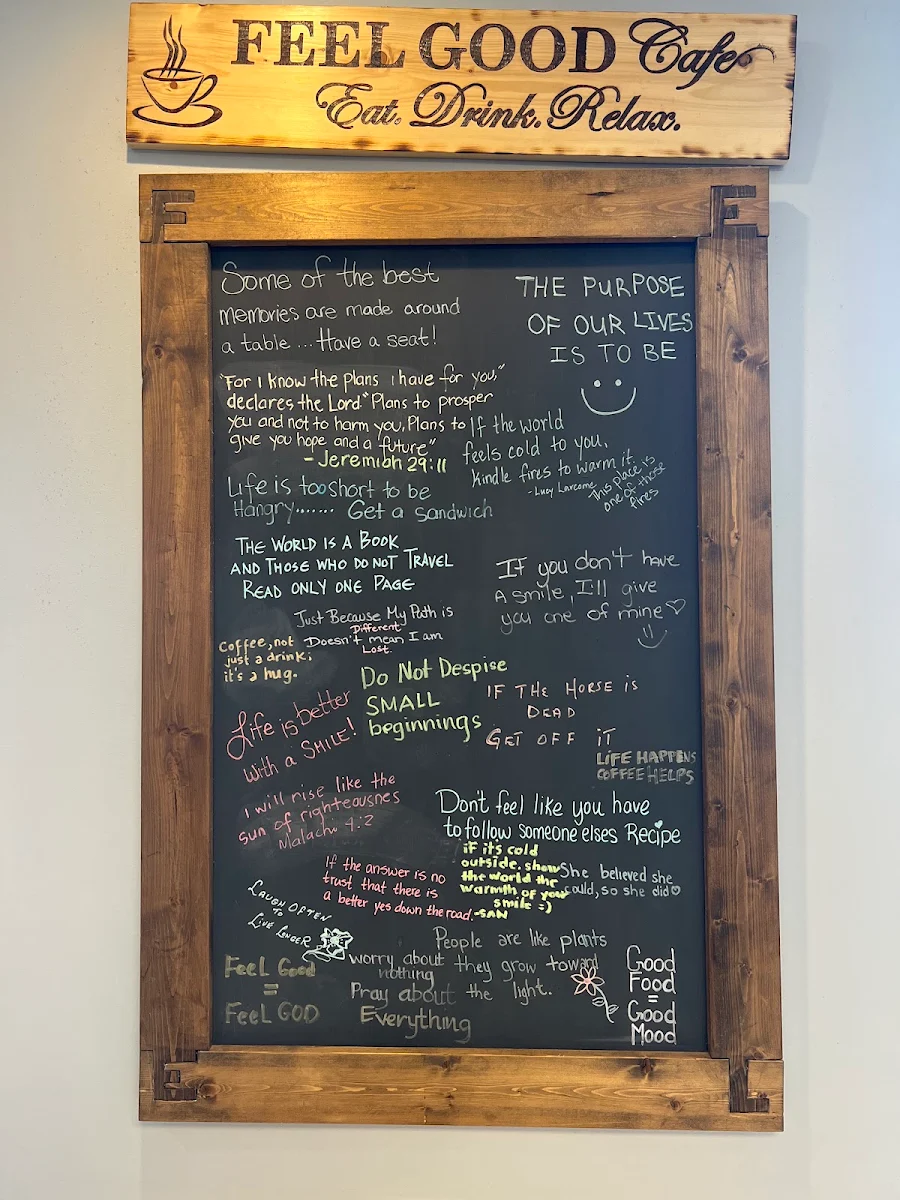 FEEL GOOD Cafe
Eat. Drink. Relax.
F
E
Some of the best
memories are made around
a table ... Have a seat!
THE PURPOSE
OF OUR LIVES
IS TO BE
"For I know the plans i have for you,"
declares the Lord." Plans to prosper
you and not to harm you, Plans to
give you hope and a "future"
- Jeremiah 29:11
If the world
feels cold to you,
kindle fires to warm it.
- Lucy Larcome
This place is
one of those
fires
Life is too short to be
Hangry....... Get a sandwich
THE WORLD IS A BOOK
AND THOSE WHO DO NOT TRAVEL
READ ONLY ONE PAGE
If you don't have
a smile, I'll give
you one of mine♡
Just Because My Path is
Different
Doesn't mean I am
Lost.
Coffee, not
just a drink;
it's a hug.
Do Not Despise
SMALL
beginnings
IF THE HORSE is
DEAD
GET OFF iT
LiFE HAPPENS
COFFEE HELPS
Life is better
With a SMILE!
I will rise like the
sun of righteousnes
Malachi 4:2
Don't feel like you have
to follow someone elses Recipe
if its cold
outside, show
the world the
warmth of your
smile :)
-SAN
She believed she
could, so she did♡
If the answer is no
trust that there is
a better yes down the road.
LAUGH OFTEN
TO
LIVE LONGER
People are like plants
they grow toward
the light.
worry about
nothing
Pray about
Everything
FeeL Good
=
FeeL GOD
Good
Food
=
Good
Mood
E
L